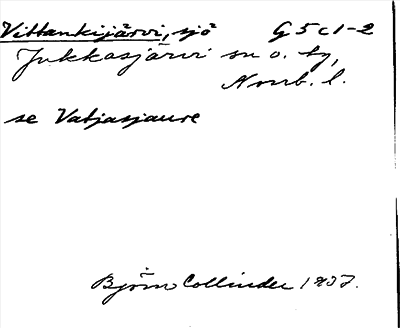 Vittankijärvi, sjö G 5 c 1-2
Jukkasjärvi sn o. tg,
Norrb. l.
se Vatjasjaure
Björn Collinder 1937.